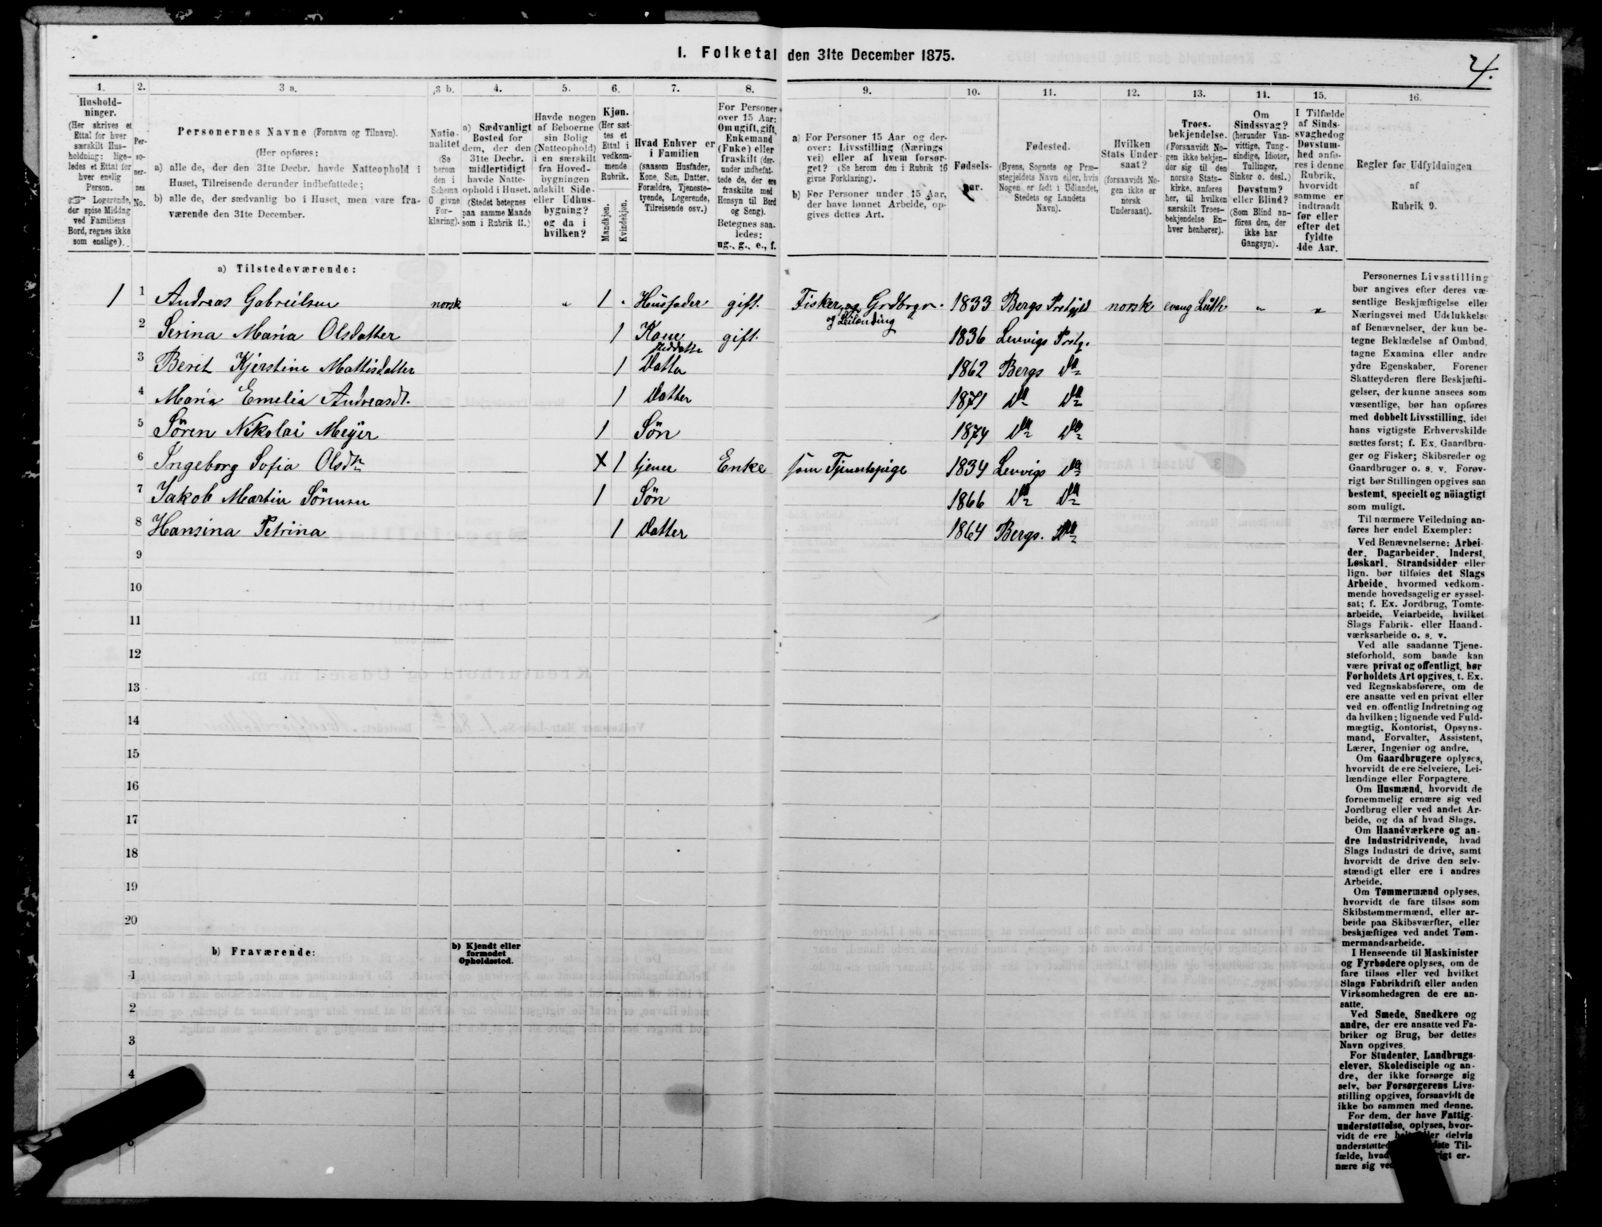 I. Folketal den 31te December 1875.
4.
1.
Hushold-
ninger.
(Her skrives et
Ettal for hver
særskilt Hus-
holdning; lige-
ledes et Ettal for
hver enslig
Person.
Logerende,
der spise Middag
ved Familiens
Bord, regnes ikke
som enslige).
2.
Per-
so-
ner-
nes
No.
3 a.
Personernes Navne (Fornavn og Tilnavn).
(Her opføres:
a) alle de, der den 31te Decbr. havde Natteophold i
Huset, Tilreisende derunder indbefattede;
b) alle de, der sædvanlig bo i Huset, men vare fra-
værende den 31te December.
3 b.
Natio-
nalitet
(Se
herom
den i
Schema
O givne
For-
klaring).
4.
a) Sædvanligt
Bosted for
dem, der den
31te Decbr.
midlertidigt
havde Natte-
ophold i Huset.
(Stedet betegnes
paa samme Maade
som i Rubrik 11.)
5.
Havde nogen
af Beboerne
sin Bolig
(Natteophold)
i en særskilt
fra Hoved-
bygningen
adskilt Side-
eller Udhus-
bygning?
og da i
hvilken?
6.
Kjøn.
(Her sæt-
tes et
Ettal i
vedkom-
mende
Rubrik.
Mandkjøn.
Kvindekjøn.
7.
Hvad Enhver er
i Familien
(saasom Husfader,
Kone, Søn, Datter,
Forældre, Tjeneste-
tyende, Logerende,
Tilreisende osv.)
8.
For Personer
over 15 Aar:
Om ugift, gift,
Enkemand
(Enke) eller
fraskilt (der-
under indbefat-
tede de, der ere
fraskilte med
Hensyn til Bord
og Seng).
Betegnes saa-
ledes:
ug., g., e., f.
9.
a) For Personer 15 Aar og der-
over: Livsstilling (Nærings-
vei) eller af hvem forsør-
get? (Se herom den i Rubrik 16
givne Forklaring).
b) For Personer under 15 Aar,
der have lønnet Arbeide, op-
gives dettes Art.
10.
Fødsels-
aar.
11.
Fødested.
(Byens, Sognets og Præ-
stegjeldets Navn eller, hvis
Nogen er født i Udlandet,
Stedets og Landets
Navn).
12.
Hvilken
Stats Under-
saat?
(forsaavidt No-
gen ikke er
norsk
Undersaat).
13.
Troes-
bekjendelse.
(Forsaavidt No-
gen ikke bekjen-
der sig til den
norske Stats-
kirke, anføres
her, til hvilken
særskilt Troes-
bekjendelse En-
hver henhører).
14.
Om
Sindssvag?
(herunder Van-
vittige, Tung-
sindige, Idioter,
Tullinger,
Sinker o. desl.)
Døvstum?
eller Blind?
(Som Blind an-
føres den, der
ikke har
Gangsyn).
15.
I Tilfælde
af Sinds-
svaghed og
Døvstum-
hed anfø-
res i denne
Rubrik,
hvorvidt
samme er
indtraadt
før eller
efter det
fyldte
4de Aar.
16.
Regler før Udfyldningen
af
Rubrik 9.
a) Tilstedeværende:
1 1 Andreas Gabrielsen norsk „ 1 Husfader gift. Fisker og Gaardbrger og Leilending 1833 Bergs Prstgjeld norsk evang Luth. „ „
2 Serina Maria Olsdatter 1 Kone gift. 1836 Lenvigs Prstg.
3 Berit Kjerstine Mattisdatter 1 Steddatter Datter 1862 Bergs Do
4 Maria Emelia Andreasdt. 1 Datter 1871 Do Do
5 Søren Nikolai Meyer 1 Søn 1874 Do Do
6 Ingeborg Sofia Olsdtr X 1 tjener Enke som Tjenestepige 1834 Lenvigs Do
7 Jakob Martin Sørensen 1 Søn 1866 Do Do
8 Hansina Petrina 1 Datter 1864 Bergs. Do
9
10
11
12
13
14
15
16
17
18
19
20
b) Fraværende:
b) Kjendt eller
formodet
Opholdssted.
1
2
3
4
Personernes Livsstilling
bør angives efter deres væ-
sentlige Beskjæftigelse eller
Næringsvei med Udelukkelse
af Benævnelser, der kun be-
tegne Beklædelse af Ombud,
tagne Examina eller andre
ydre Egenskaber. Forener
Skatteyderen flere Beskjæfti-
gelser, der kunne ansees som
væsentlige, bør han opføres
med dobbelt Livsstilling, idet
hans vigtigste Erhvervskilde
sættes først; f. Ex. Gaardbru-
ger og Fisker; Skibsreder og
Gaardbruger o. s. v. Forøv-
rigt bør Stillingen opgives saa
bestemt, specielt og nöiagtigt
som muligt.
Til nærmere Veiledning an-
føres her endel Exempler:
Ved Benævnelserne: Arbei-
der, Dagarbeider, Inderst,
Løskarl, Strandsidder eller
lign. bør tilføies det Slags
Arbeide, hvormed vedkom-
mende hovedsagelig er syssel-
sat; f. Ex. Jordbrug, Tomte-
arbeide, Veiarbeide, hvilket
Slags Fabrik- eller Haand-
værksarbeide o. s. v.
Ved alle saadanne Tjene-
steforhold, som baade kan
være privat og offentligt, bør
Forholdets Art opgives, t. Ex.
ved Regnskabsførere, om de
ere ansatte ved en privat eller
ved en offentlig Indretning og
da hvilken; lignende ved Fuld-
mægtig, Kontorist, Opsyns-
mand, Forvalter, Assistent,
Lærer, Ingeniør og andre.
Om Gaardbrugere oplyses,
hvorvidt de ere Selveiere, Lei-
lændinge eller Forpagtere.
Om Husmænd, hvorvidt de
fornemmelig ernære sig ved
Jordbrug eller ved andet Ar-
beide, og da af hvad Slags.
Om Haandværkere og an-
dre Industridrivende, hvad
Slags Industri de drive, samt
hvorvidt de drive den selv-
stændigt eller ere i andres
Arbeide.
Om Tømmermænd oplyses,
hvorvidt de fare tilsøs som
Skibstømmermænd, eller ar-
beide paa Skibsværfter, eller
beskjæftiges ved andet Tøm-
mermandsarbeide.
I Henseende til Maskinister
og Fyrbødere oplyses, om de
fare tilsøs eller ved hvilket
Slags Fabrikdrift eller anden
Virksomhedsgren de ere an-
satte.
Ved Smede, Snedkere og
andre, der ere ansatte ved Fa-
briker og Brug, bør dettes
Navn opgives.
For Studenter, Landbrugs-
elever, Skoledisciple og an-
dre, der ikke forsørge sig
selv, bør Forsørgerens Livs-
stilling opgives, forsaavidt de
ikke bo sammen med denne.
For dem, der have Fattig-
understøttelse, oplyses, hvor-
vidt de ere eller delvis
Til-
fælde, er-
nære sig